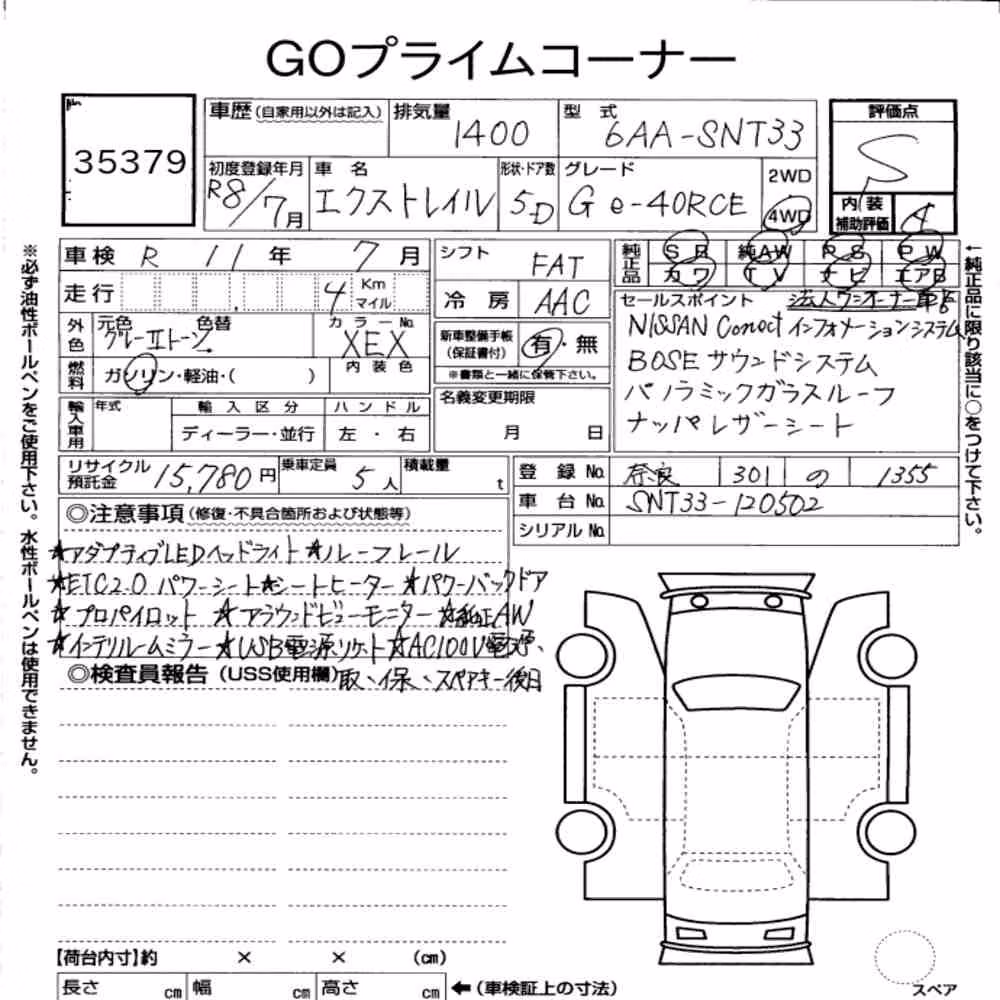 GOプライムコーナー
35379
車歴(自家用以外は記入) 排気量 1400 型式 6AA-SNT33
評価点 S
初度登録年月 R8/7月 車名 エクストレイル 形状・ドア数 5D グレード G e-4ORCE 2WD 4WD
内装補助評価 4
車検 R 11年 7月
走行 4 Km マイル
外色 元色 グレーⅡトーン 色替 カラーNo. XEX 内装色
燃料 ガソリン・軽油・( )
輸入車用 年式 輸入区分 ディーラー・並行 ハンドル 左・右
シフト FAT
冷房 AAC
新車整備手帳(保証書付) 有・無
※書類と一緒に保管下さい。
名義変更期限 月 日
純正品 SR 純AW PS PW
カワ TV ナビ エアB
セールスポイント 法人ワンオーナー車
NISSAN Conect インフォメーションシステム
BOSE サウンドシステム
パノラミックガラスルーフ
ナッパレザーシート
リサイクル預託金 15,780円 乗車定員 5人 積載量 t
登録No. 奈良 301 の 1355
車台No. SNT33-120502
シリアルNo.
◎注意事項(修復・不具合箇所および状態等)
★アダプティブLEDヘッドライト ★ルーフレール
★ETC2.0 パワーシート★シートヒーター ★パワーバックドア
★プロパイロット ★アラウンドビューモニター ★純正AW
★インテリルームミラー ★USB電源ソケット ★AC100V電源、
◎検査員報告(USS使用欄) 取、保、スペアキー後日
※必ず油性ボールペンをご使用下さい。水性ボールペンは使用できません。
←純正品に限り該当に○をつけて下さい。
【荷台内寸】約 × × (cm)
長さ cm 幅 cm 高さ cm ←(車検証上の寸法)
スペア